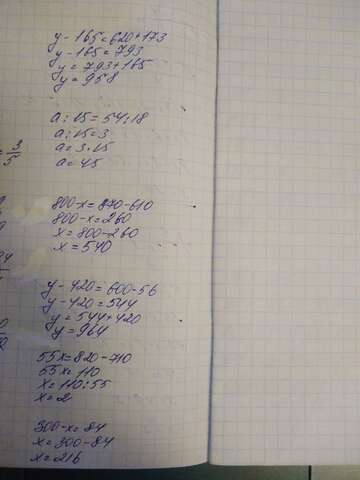 y - 165 = 620 + 173
y - 165 = 793
y = 793 + 165
y = 958
a : 15 = 54 : 18
a : 15 = 3
a = 3 · 15
a = 45
= 3/5
800 - x = 870 - 610
800 - x = 260
x = 800 - 260
x = 540
y - 420 = 600 - 56
y - 420 = 544
y = 544 + 420
y = 964
55x = 820 - 710
55x = 110
x = 110 : 55
x = 2
300 - x = 84
x = 300 - 84
x = 216